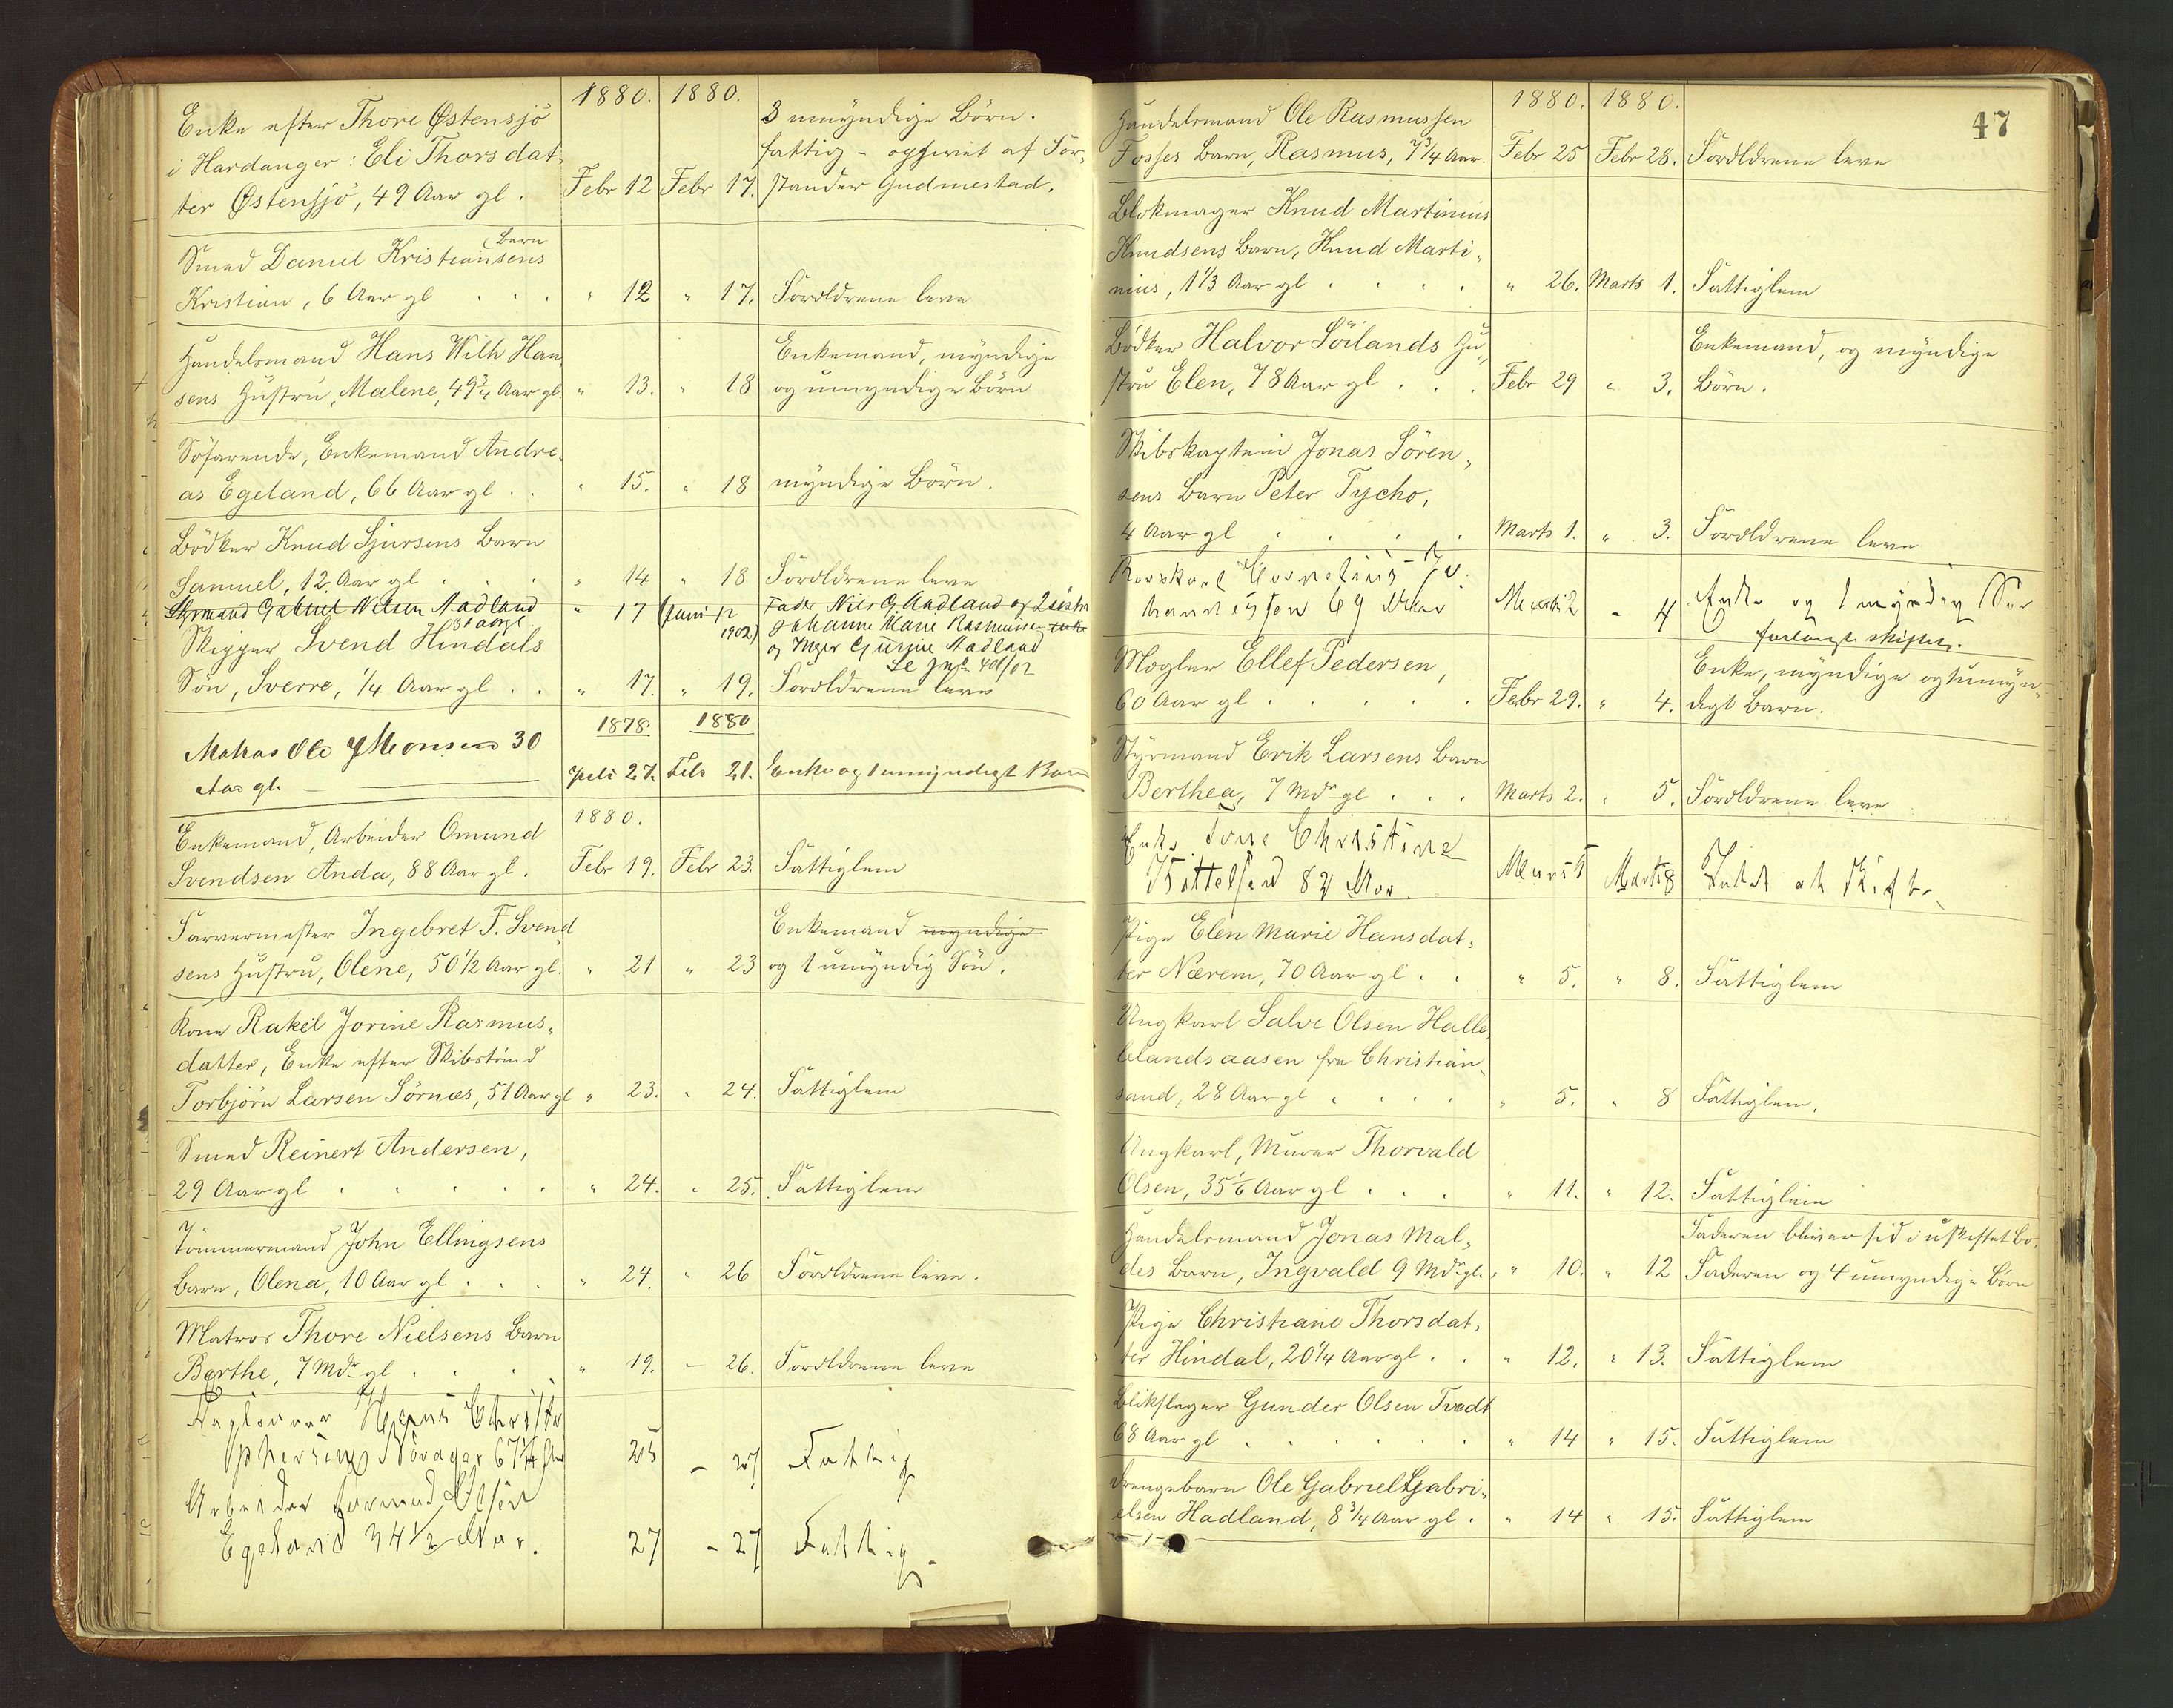 1880. 1880.
Enke efter Thore Østensjö
i Hardanger: Eli Thorsdat-
ter Østensjö, 49 Aar gl. Febr 12 Febr 17.
3 umyndige Börn.
fattig - opgivet af For-
stander Gudmestad.
Smed Daniel Kristiansens Barn
Kristian, 6 Aar gl . . . " 12 " 17. Forældrene leve
Handelsmand Hans Wilh Han-
sens Hustru, Malene, 49 3/4 Aar gl. " 13. " 18
Enkemand, myndige
og umyndige Börn
Söfarende, Enkemand Andre-
as Egeland, 66 Aar gl . . " 15. " 18 myndige Börn.
Bödker Knud Sjursens Barn
Samuel, 12 Aar gl . . . " 14 " 18 Forældrene leve
Styrmand Gabriel Nilsen Aadland
31 aar gl. " 17 (Juni 12
1902)
Fader Niels G. Aadland og 2 söstre
Johanne Marie Rasmussen enke
og Inger Gurine Aadland
Se Jnl. 401/02
Skipper Svend Hindals
Sön, Sverre, 1/4 Aar gl . . " 17. " 19. Forældrene leve
1878. 1880
Matros Ole J Monsen 30
Aar gl. Juli 27. Feb 21. Enke og 1 umyndigt Barn
1880.
Enkemand, Arbeider Omund
Svendsen Anda, 88 Aar gl. Febr 19. Febr 23. Fattiglem
Farvermester Ingebret F. Svend-
sens Hustru, Olene, 50 1/2 Aar gl. " 21 " 23
Enkemand myndige
og 1 umyndig Sön.
Kone Rakel Jorine Rasmus-
datter, Enke efter Skibstömd
Torbjörn Larsen Sörnæs, 51 Aar gl " 23. " 24. Fattiglem
Smed Reinert Andersen,
29 Aar gl . . . . . " 24. " 25. Fattiglem
Tömmermand John Ellingsens
Barn, Olena, 10 Aar gl . . . " 24. " 26 Forældrene leve.
Matros Thore Nielsens Barn
Berthe, 7 Mdr gl . . . . " 19. - 26. Forældrene leve
Christo
phersen 67 1/4 Aar 25 - 27 Fattig
Arbeider Olsen
Egeland 74 1/2 Aar. 27 - 27 Fattig.
47
1880. 1880.
Handelsmand Ole Rasmussen
Fosses Barn, Rasmus, 7 3/4 Aar. Febr 25 Febr 28. Forældrene leve
Blokmager Knud Martinius
Knudsens Barn, Knud Marti-
nius, 1 1/3 Aar gl . . . . " 26. Marts 1. Fattiglem
Bödker Halvor Söilands Hu-
stru Elen, 78 Aar gl . . . Febr 29 " 3.
Enkemand, og myndige
Börn.
Skibskaptein Jonas Sören-
sens Barn Peter Tycho,
4 Aar gl . . . . Marts 1. " 3. Forældrene leve
Cornelius
69 Aar Marts 2 - 4 Enke og 1 myndig Sön
forlangt skiftet.
Mægler Ellef Pedersen,
60 Aar gl . . . . . Febr 29. " 4.
Enke, myndige og 1 umyn-
digt Barn.
Styrmand Erik Larsens Barn
Berthea, 7 Mdr gl . . . Marts 2. " 5. Forældrene leve
Enke Christine
Kittelsen 82 Aar. Marts 5 Marts 8 Intet at Skifte
Pige Elen Marie Hansdat-
ter Nærem, 70 Aar gl . . " 5. " 8. Fattiglem
Ungkarl Salve Olsen Halle-
landsaasen fra Christian-
sand, 28 Aar gl . . . . " 5. " 8 Fattiglem.
Ungkarl, Murer Thorvald
Olsen, 35 1/6 Aar gl . . . " 11. " 12. Fattiglem
Handelsmand Jonas Mal-
des Barn, Ingvald 9 Mdr gl. " 10. " 12
Faderen bliver sid i uskiftet Bo.
Faderen og 4 umyndige Börn
Pige Christiane Thorsdat-
ter Hindal, 20 1/4 Aar gl . . " 12. " 13. Fattiglem
Blikslager Gunder Olsen Tvedt
68 Aar gl . . . . . . " 14 " 15. Fattiglem
Drengebarn Ole Gabriel Gabri-
elsen Hadland, 8 3/4 Aar gl . " 14 " 15. Fattiglem